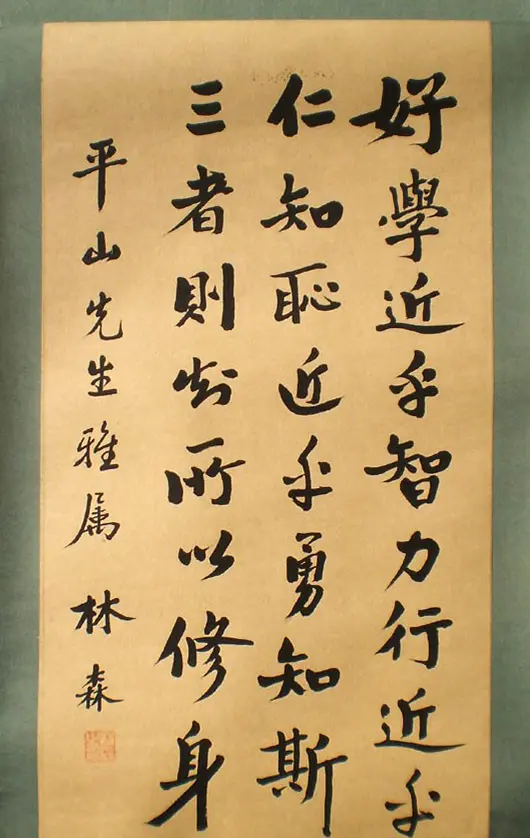 好學近乎智力行近乎
仁知恥近乎勇知斯
三者則知所以修身
平山先生雅属 林森